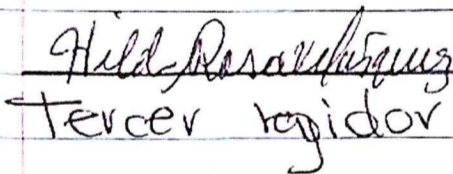 Hild Rosa Velásquez
Tercer regidor